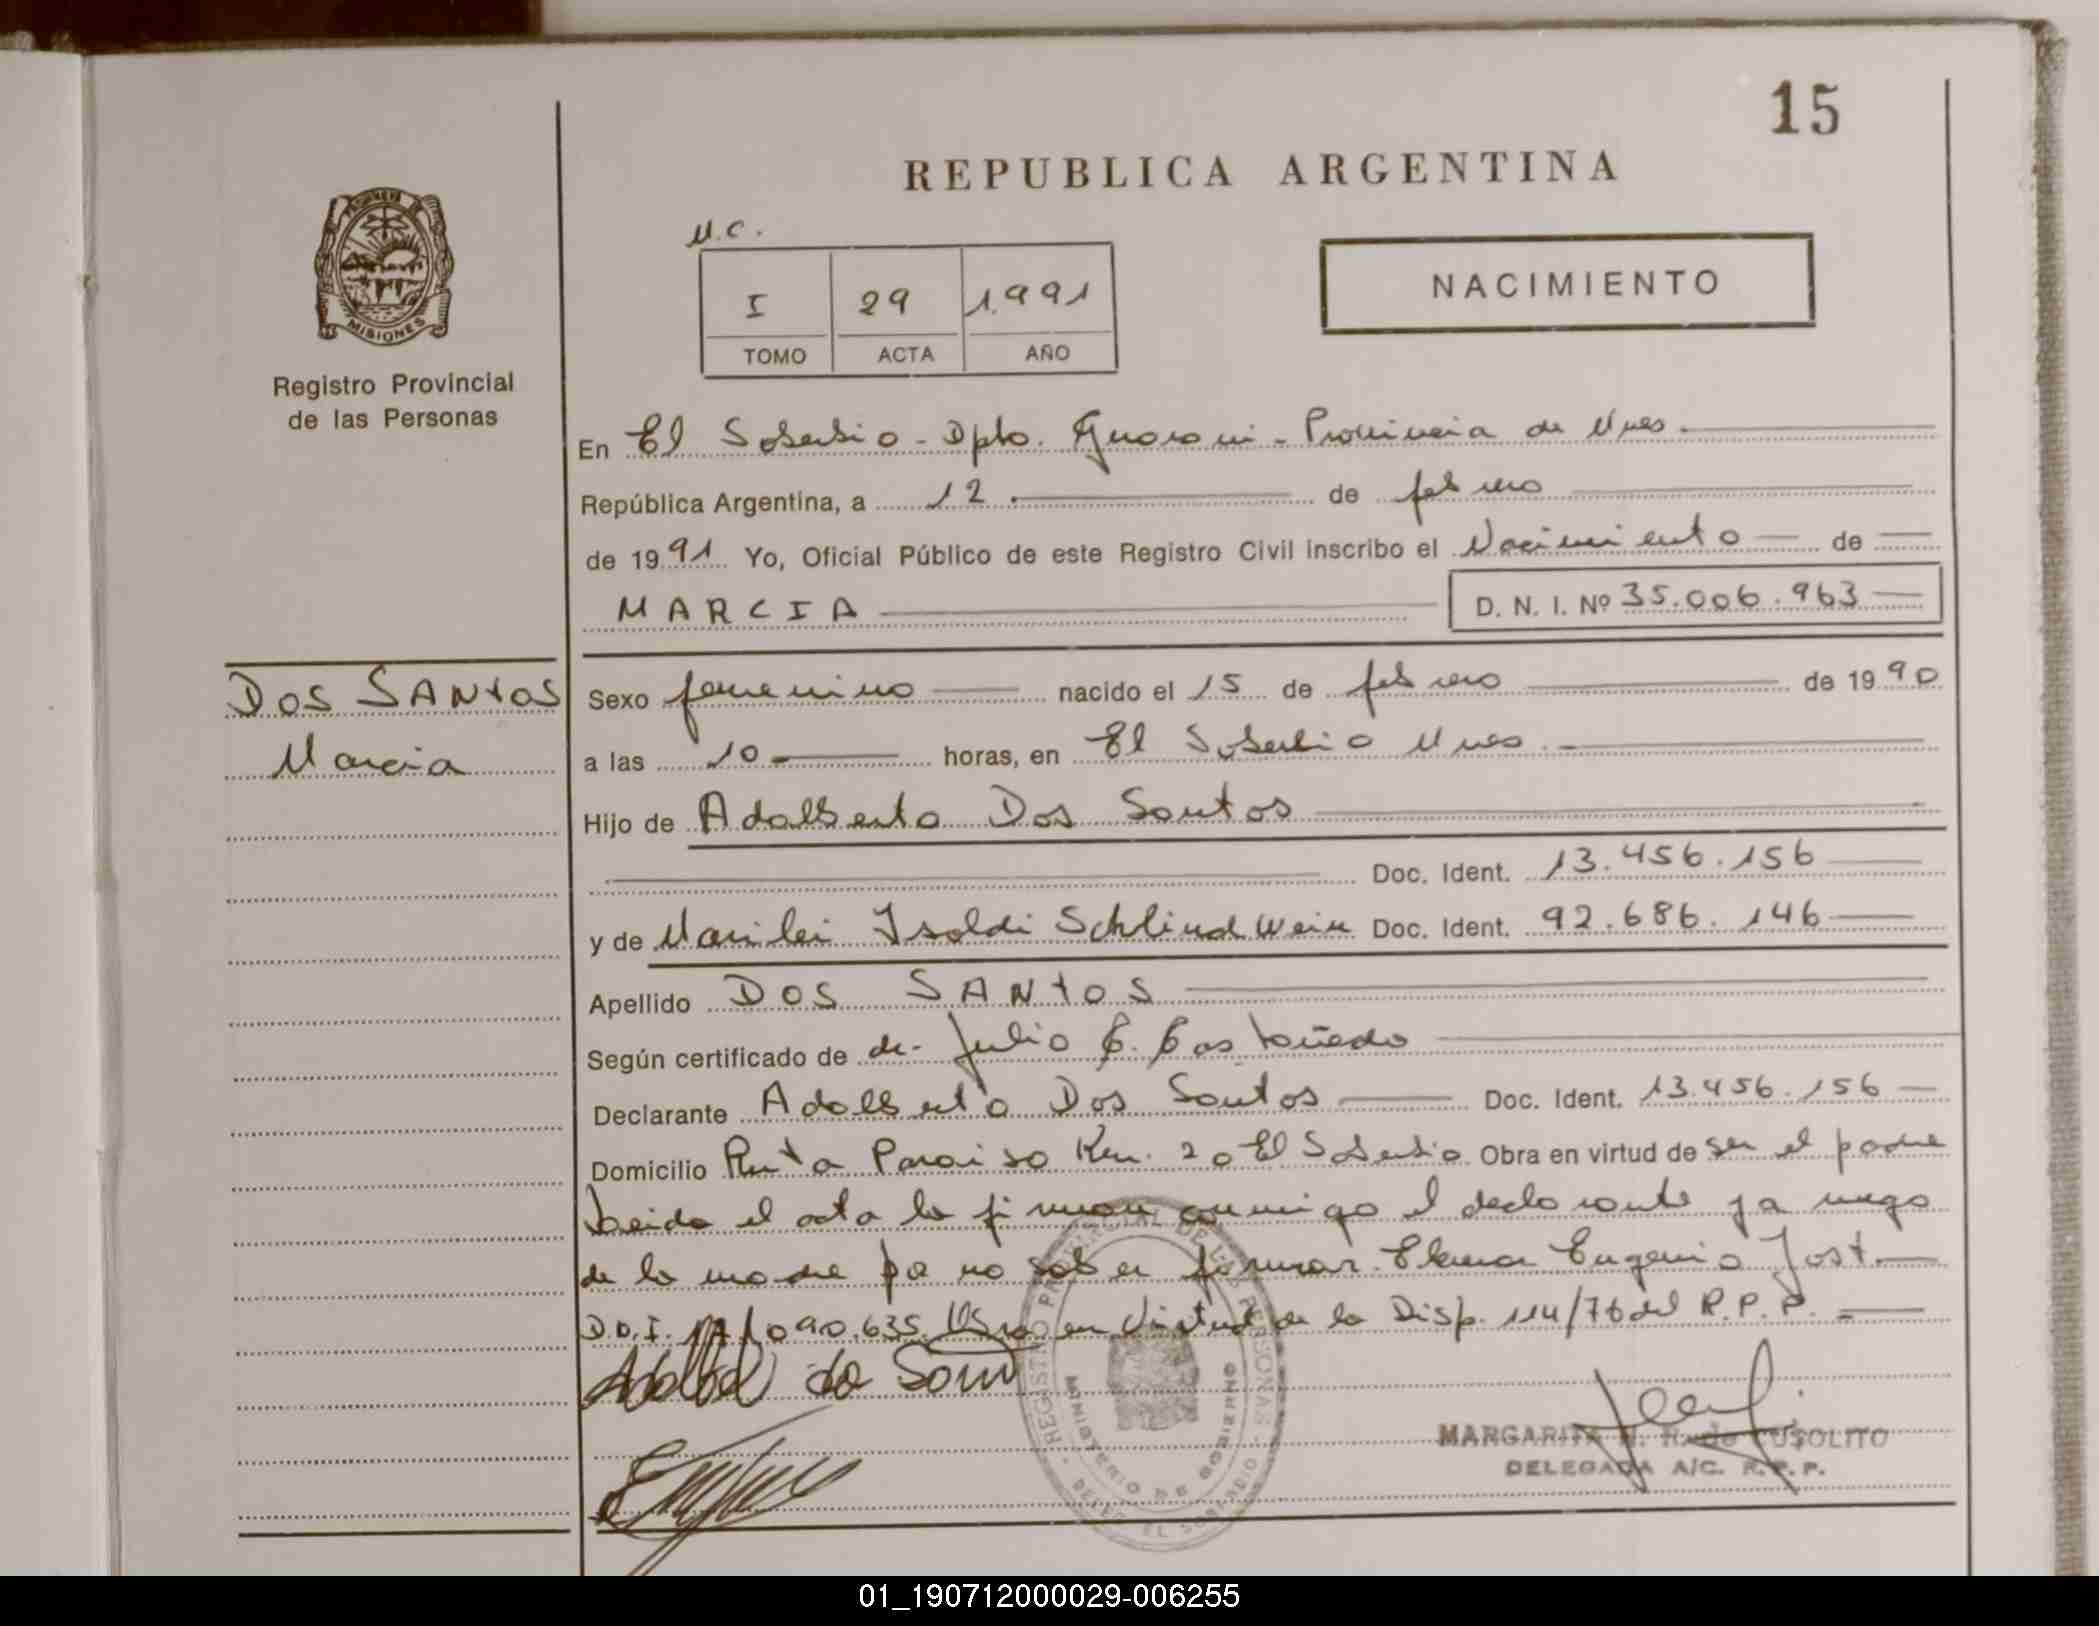 15
REPUBLICA ARGENTINA
M.C.
I 29 1.991
TOMO ACTA AÑO
NACIMIENTO
MISIONES
Registro Provincial
de las Personas
En El Soberbio - Dpto. Guarani - Provincia de Mnes.
República Argentina, a 12 de febrero
de 1991 Yo, Oficial Público de este Registro Civil inscribo el Nacimiento de
MARCIA D. N. I. Nº 35.006.963
DOS SANtOS
Marcia
Sexo femenino nacido el 15 de febrero de 1990
a las 10 horas, en El Soberbio Mnes.
Hijo de Adalberto Dos Santos
Doc. Ident. 13.456.156
y de Marilei Isoldi Schlindwein Doc. Ident. 92.686.146
Apellido DOS SANtOS
Según certificado de dr. Julio C. Castañedo
Declarante Adalberto Dos Santos Doc. Ident. 13.456.156
Domicilio Ruta Paraiso Km. 20 El Soberbio Obra en virtud de ser el padre
Leida el acta la firman conmigo el declarante y a ruego
de la madre por no saber firmar Elena Eugenia Jost.
D.N.I. 17.090.635 Obra en virtud de la Disp. 114/76 del R.P.P.
REGISTRO PROVINCIAL DE LAS PERSONAS
MINISTERIO DE GOBIERNO
DELEG. EL SOBERBIO
MARGARITA R. de CUSOLITO
DELEGADA A/C. R.P.P.
01_190712000029-006255